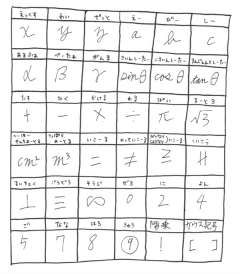 えっくす わい ぜっと えー びー しー
x y z a b c
あるふぁ べーた がんま さいんしーた こさいんしーた たんじぇんとしーた
α β γ sinθ cosθ tanθ
たす ひく かける わる ぱい るーと3
+ − × ÷ π √3
cm² m³ = ≠ ≧
すいちょく ごうどう ぜろ に よん
⊥ ≡ ∞ 0 2 4
ご なな はち きゅう 階乗 ガウス記号
5 7 8 ⑨ ! [ ]